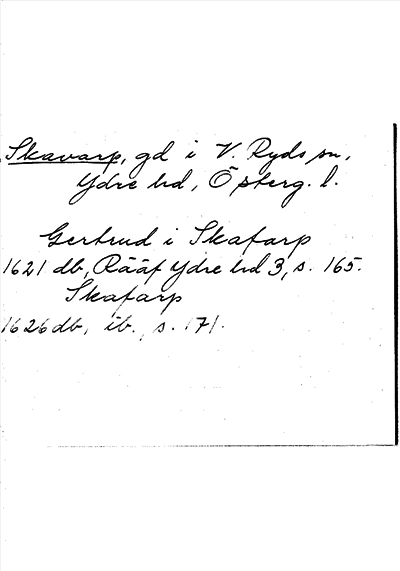 Skavarp, gd i V. Ryds sn,
Ydre hd, Österg. l.
Gertrud i Skafarp
1621 db, Rääf Ydre hd 3, s. 165.
Skafarp
1626 db, ib., s. 171.